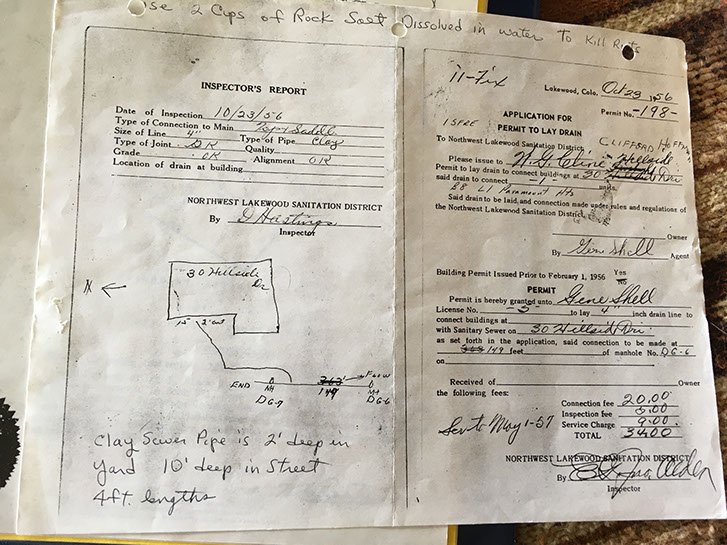 Use 2 Cups of Rock Salt Dissolved in water To Kill Roots
INSPECTOR'S REPORT
Date of Inspection 10/23/56
Type of Connection to Main
Size of Line 4" Type of Pipe Clay
Type of Joint OK Quality
Grade OK Alignment OK
Location of drain at building
NORTHWEST LAKEWOOD SANITATION DISTRICT
By G Hastings
Inspector
N
30 Hillside
Dr
15' 2' out
END MH DG-7
262' 149 From MH DG-6
Clay Sewer Pipe is 2' deep in
Yard 10' deep in Street
4ft. lengths
11-Fix
Lakewood, Colo. Oct 23 1956
Permit No. -198-
APPLICATION FOR
PERMIT TO LAY DRAIN
1 SFRE
To Northwest Lakewood Sanitation District, CLIFFORD
Please issue to W. G. Cline Hillside
Permit to lay drain to connect buildings at 30 Hillside Dr
said drain to connect -1- units.
B8 L1 Paramount Hts
Said drain to be laid, and connection made under rules and regulations of
the Northwest Lakewood Sanitation District.
Owner
By Gene Shell Agent
Building Permit Issued Prior to February 1, 1956 Yes
No
PERMIT
Permit is hereby granted unto Gene Shell
License No. 5- to lay 4" inch drain line to
connect buildings at
with Sanitary Sewer on 30 Hillside Dr.
as set forth in the application, said connection to be made at
149 feet of manhole No. DG-6
on
Received of Owner
the following fees:
Connection fee 20.00
Inspection fee 5.00
Service Charge 9.00
TOTAL 34.00
Ser to May 1-57
NORTHWEST LAKEWOOD SANITATION DISTRICT
By
Inspector